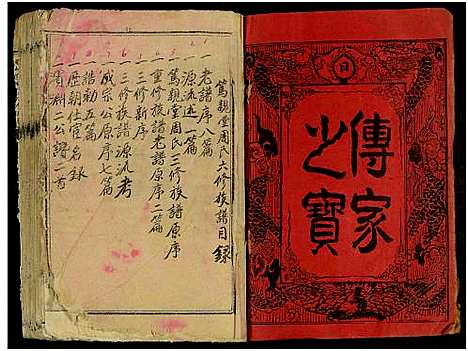 傳家之寶
篤親堂周氏六修族譜目錄
老譜序八篇
源流述一篇
篤親堂周氏三修族譜原序
重修族譜老譜原序二篇
三修新序
三修族譜源流考
成宗公原序七篇
誥勅五篇
歷朝仕宦名錄
二公譜